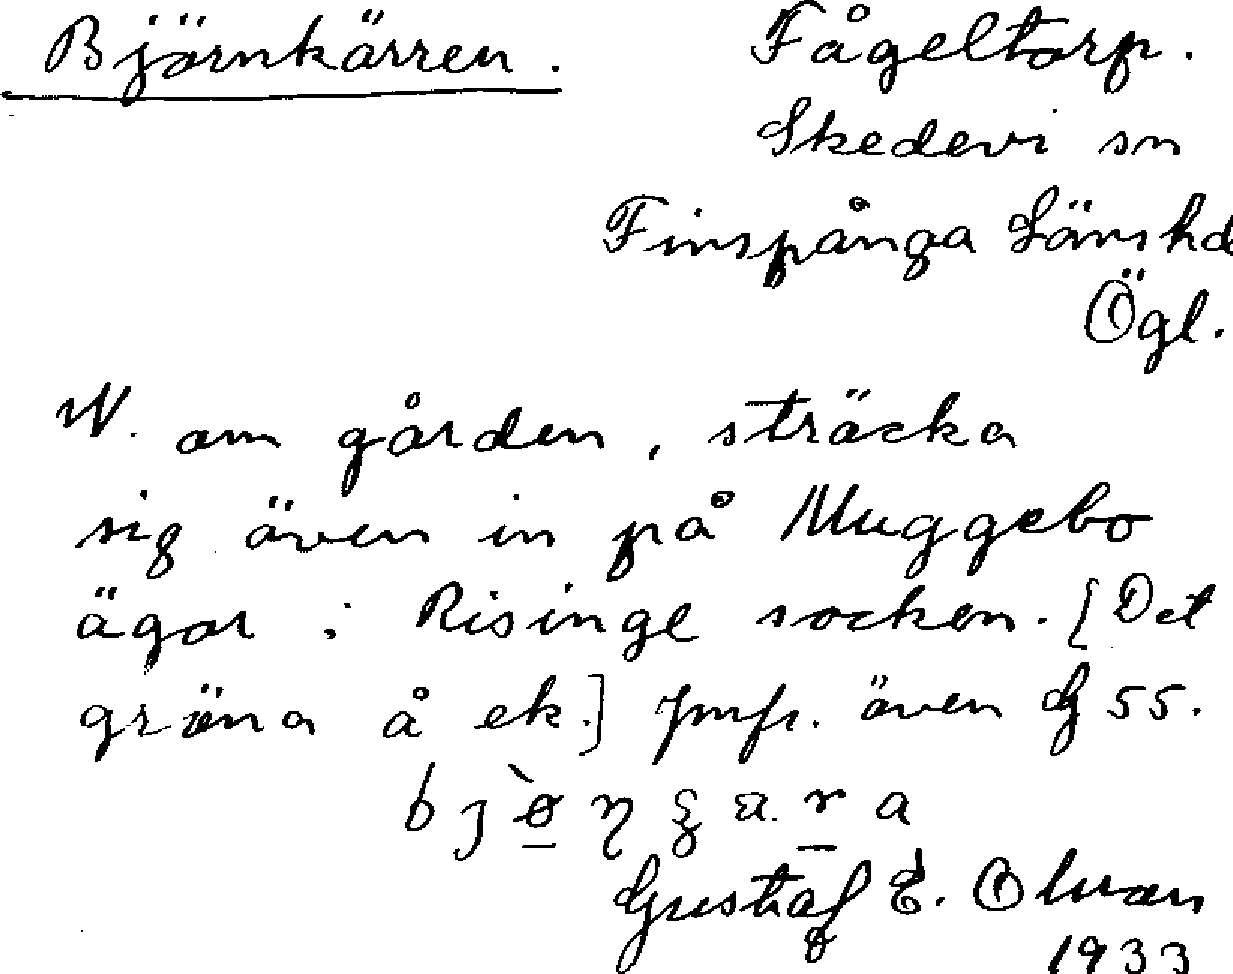 Björnkärren. Fågeltorp.
Skedevi sn
Finspånga Länshd
Ögl.
N. om gården, sträcka
sig även in på Muggebo
ägor i Risinge socken. [Det
gröna å ek.] Jmfr. även G 55.
Gustaf E. Olvan
1933